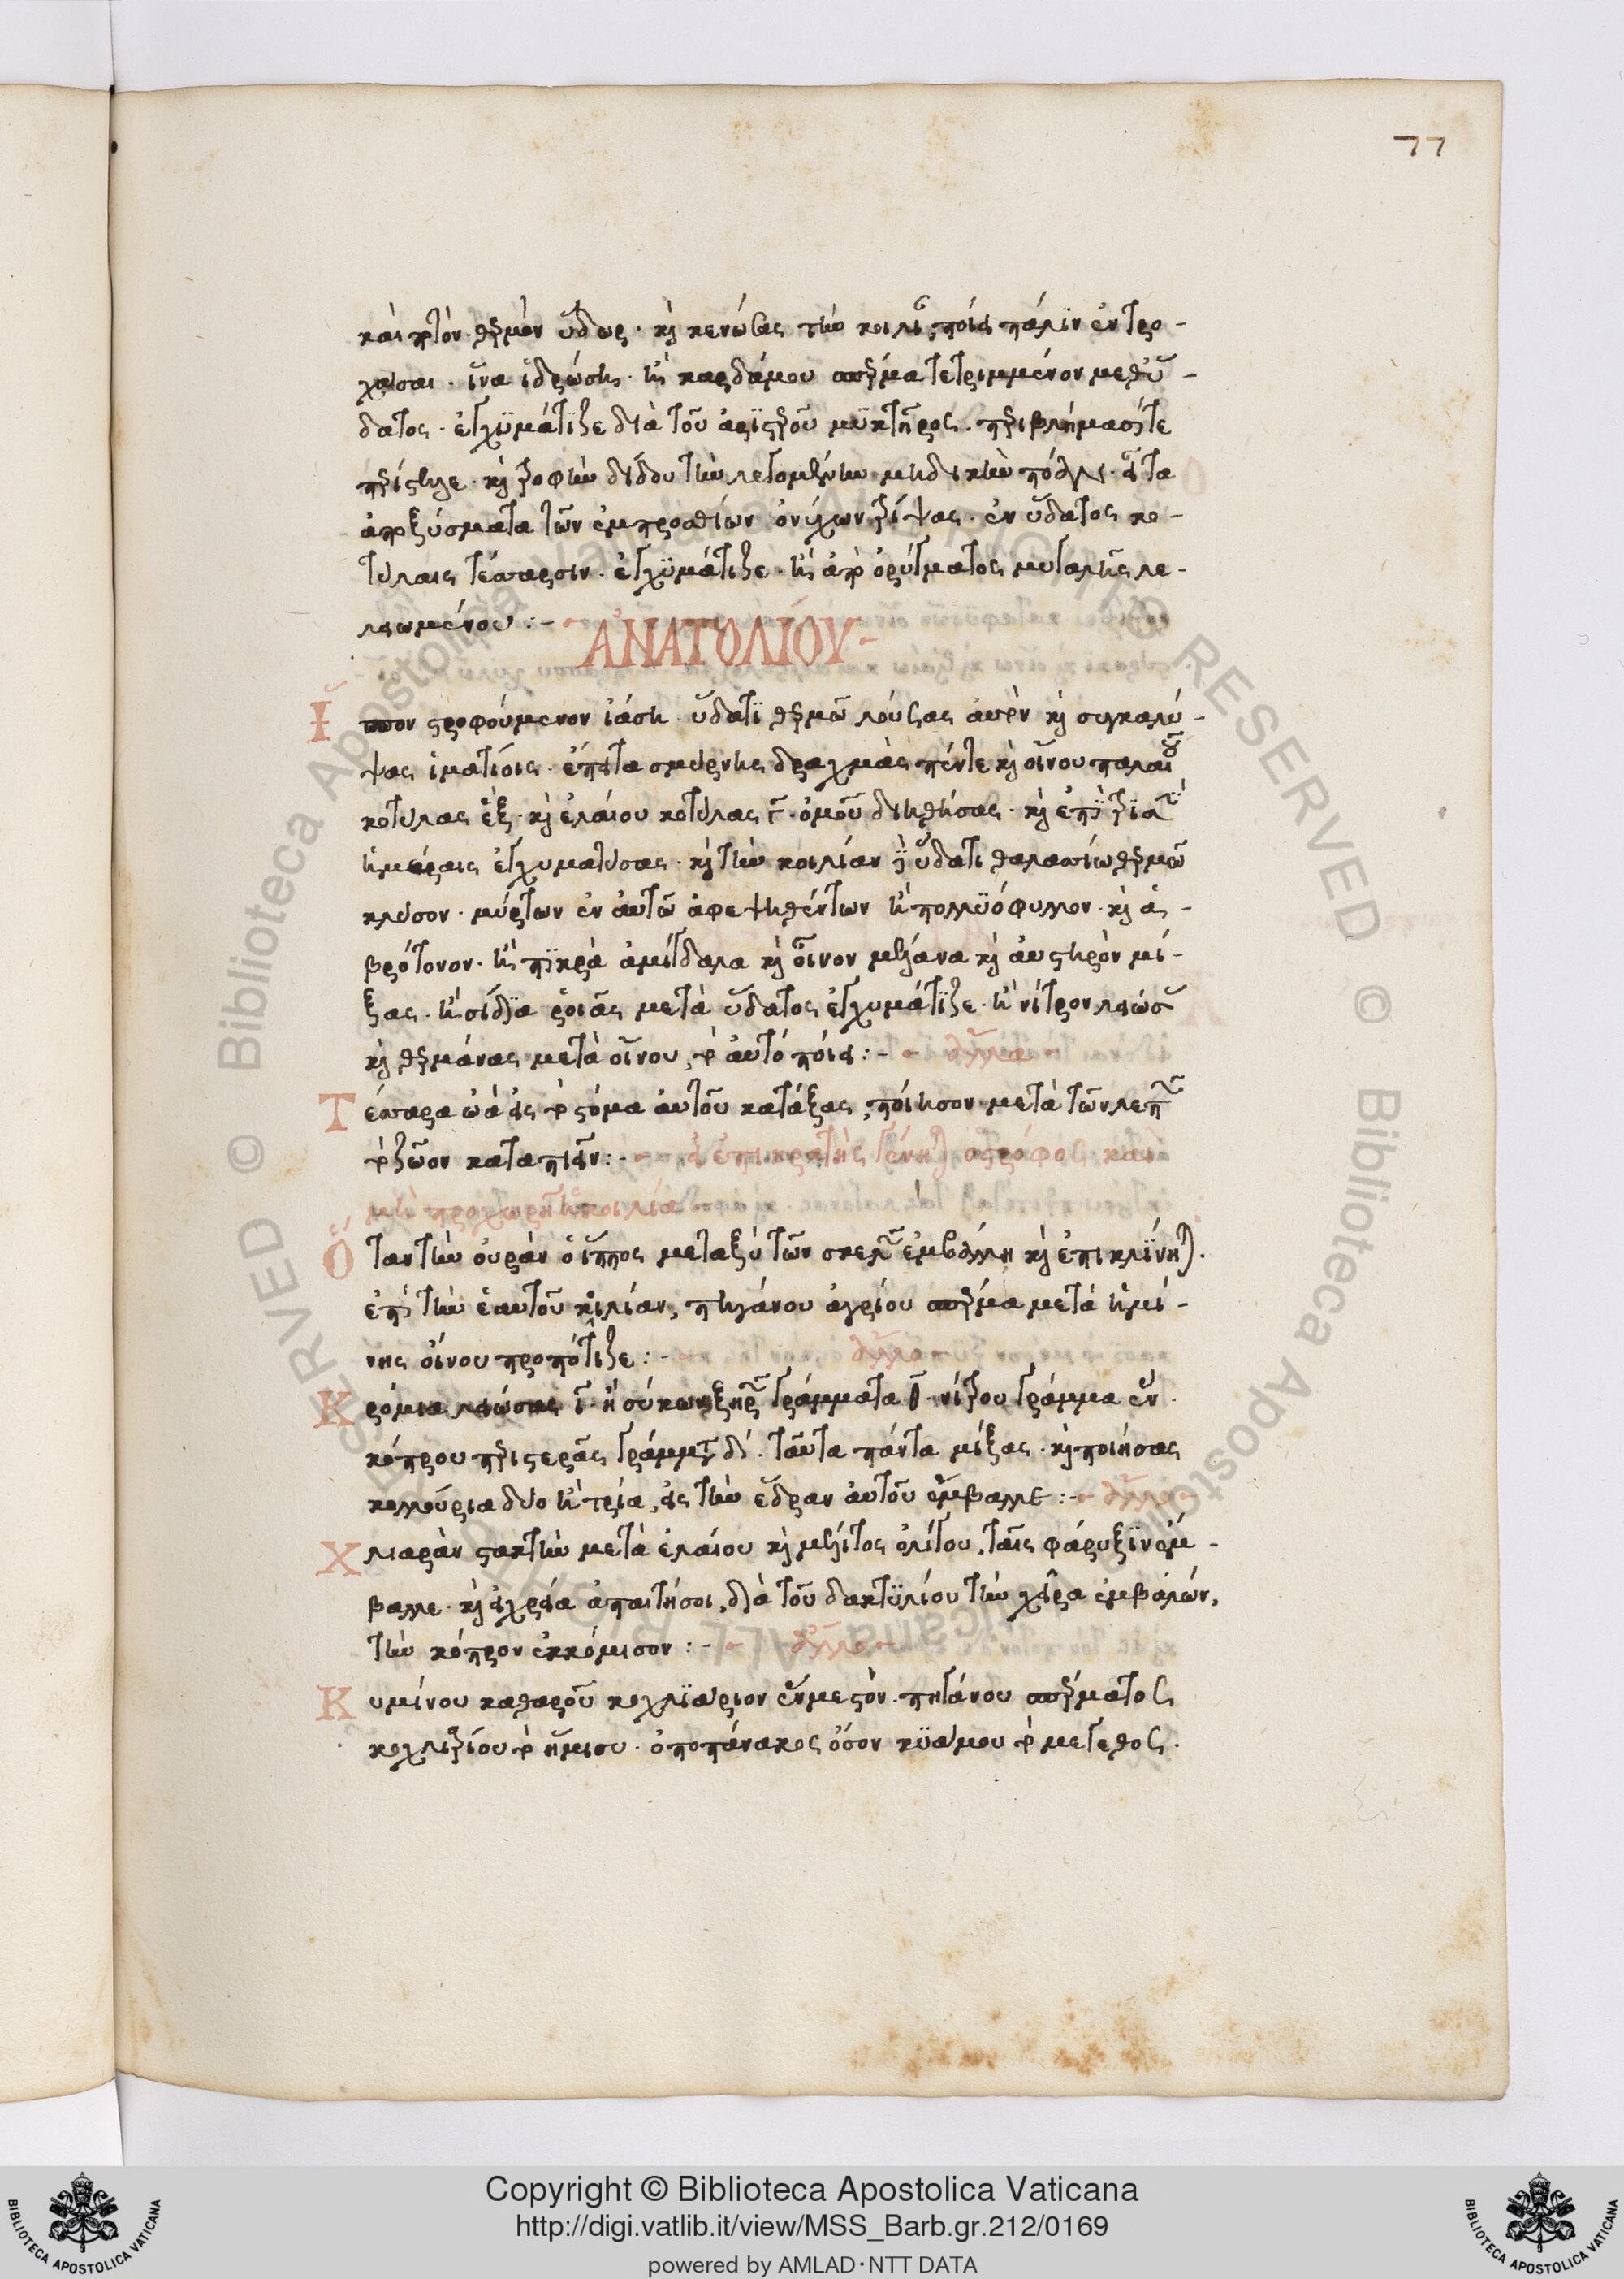 77
καὶ πότον θερμὸν ὕδωρ· καὶ κενώσας τὴν κοιλίαν, ποίει πάλιν ἐντρο-
χάσαι· ἵνα ἱδρώση· ἢ καρδάμου σπέρμα τετριμμένον μεθ' ὕ-
δατος· ἐγχϋμάτιζε διὰ τοῦ ἀριστεροῦ μυκτῆρος· περιβλήμασί τε
περίστελε· καὶ τροφὴν δίδου τὴν λεγομένην μηδικὴν πόαν· εἶτα
ἀποξύσματα τῶν ἐμπροσθίων ὀνύχων τρίψας· ἐν ὕδατος κο-
τύλαις τέσσαρσιν· ἐγχϋμάτιζε· ἢ ἀπὸ ὀρύγματος μυγαλῆς λε-
λειωμένου :-
ΑΝΑΤΟΛΙΟΥ-
Ἵππον στροφούμενον ἰάση· ὕδατϊ θερμῶ λούσας αὐτὸν καὶ συγκαλύ-
ψας ἱματίοις· ἔπειτα σμύρνης δραχμὰς πέντε καὶ οἴνου παλαιοῦ
κοτύλας ἓξ· καὶ ἐλαίου κοτύλας γ· ὁμοῦ διηθήσας· καὶ ἐπὶ τρισὶν
ἡμέραις ἐγχυματίσας· καὶ τὴν κοιλίαν ὕδατι θαλασσίω θερμῶ
κλύσον· μύρτων ἐν αὐτῶ ἀφεψηθέντων ἢ πολλϋόφυλλον· καὶ ἀ-
βρότονον· ἢ πϊκρὰ ἀμίγδαλα καὶ οἶνον μέλανα καὶ αὐστηρὸν μί-
ξας· ἢ σίδϊα ῥοιᾶς μετὰ ὕδατος ἐγχυμάτϊζε· ἢ νίτρον λειώσας
καὶ θερμάνας μετὰ οἴνου, τὸ αὐτὸ ποίει :- ἄλλο -
Τέσσαρα ὠὰ εἰς τὸ στόμα αὐτοῦ κατάξας, ποίησον μετὰ τῶν λεπῶν
τὸ ζῶον καταπιεῖν :- εἰ ἐπικρατὴς γένηται στρόφος καὶ
μὴ προχωρῆ ἡ κοιλία -
Ὅταν τὴν οὐρὰν ὁ ἵππος μεταξὺ τῶν σκελῶν ἐμβάλλη καὶ ἐπικλΐνηται·
ἐπὶ τὴν ἑαυτοῦ κοιλίαν, πηγάνου ἀγρίου σπέρμα μετὰ ἡμί-
νης οἴνου προπότιζε :- ἄλλο -
Κρόμια λειώσας γ· ἢ σύκων ξηρῶν γράμματα· νίτρου γράμμα ἓν·
κόπρου περιστερᾶς γράμματα δ'· ταῦτα πάντα μίξας· καὶ ποιήσας
κολλούρια δύο ἢ τρία, εἰς τὴν ἕδραν αὐτοῦ ἔμβαλλε :- ἄλλο -
Χλιαρὰν στακτὴν μετὰ ἐλαίου καὶ μέλιτος ὀλίγου, ταῖς φάρυξϊν ἔμ-
βαλλε· καὶ εἰ χρεία ἀπαιτήσοι, διὰ τοῦ δακτϋλίου τὴν χεῖρα ἐμβαλών,
τὴν κόπρον ἐκκόμισον :- ἄλλο -
Κυμίνου καθαροῦ κοχλϊάριον ἓν μεστὸν· πηγάνου σπέρματος
κοχλιαρίου τὸ ἥμισυ· ὀποπάνακος ὅσον κϋάμου τὸ μέγεθος·
Copyright © Biblioteca Apostolica Vaticana
http://digi.vatlib.it/view/MSS_Barb.gr.212/0169
powered by AMLAD·NTT DATA